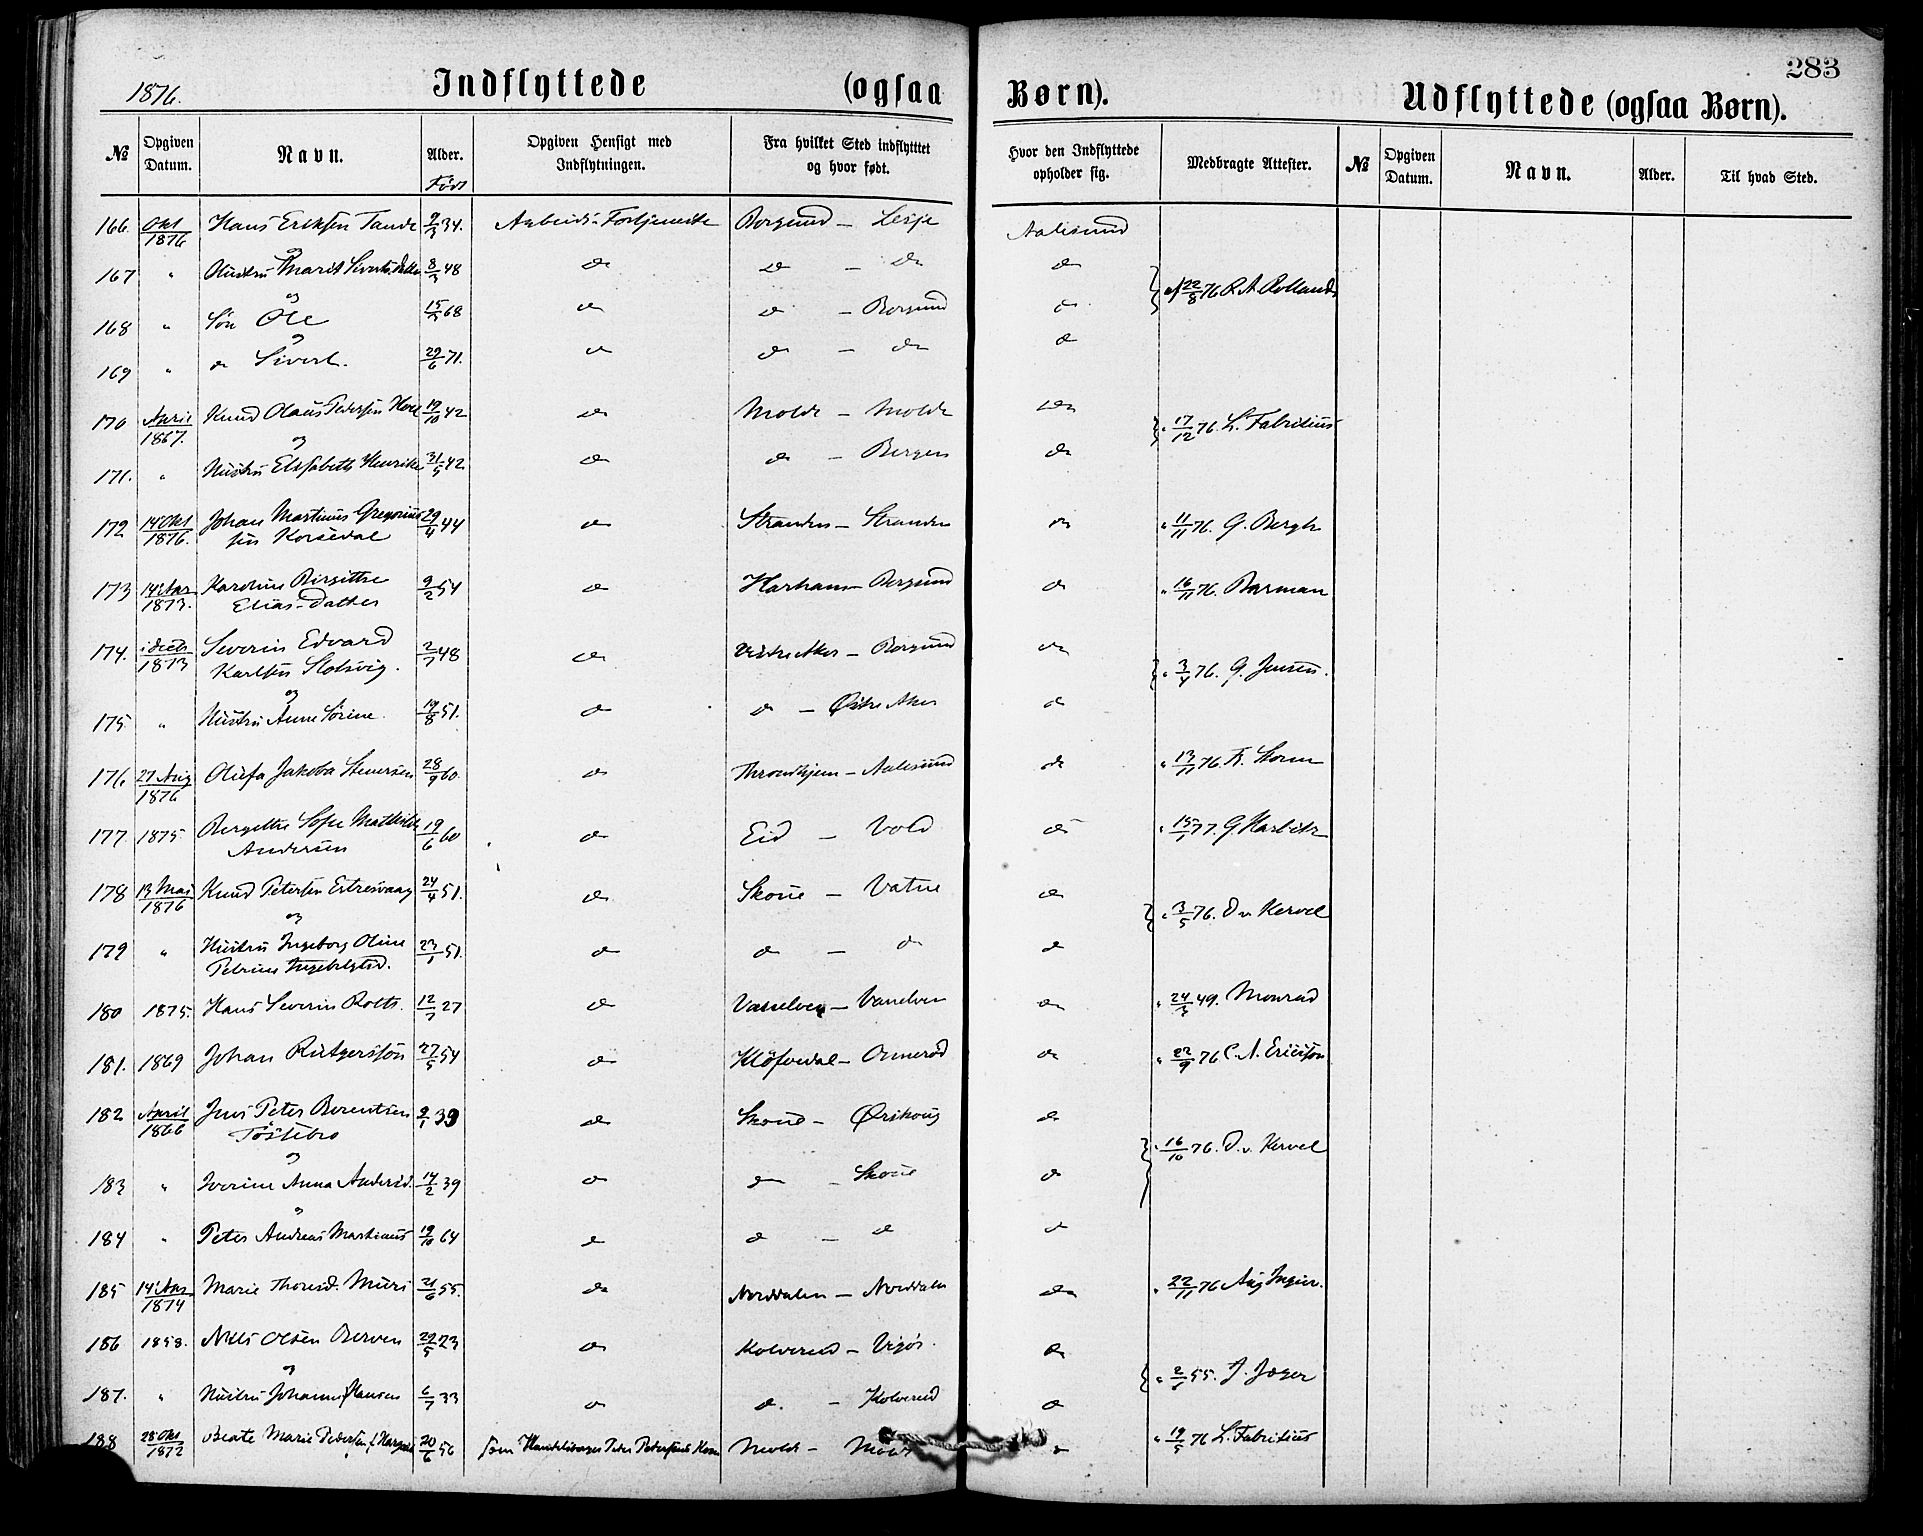 1876.
Indflyttede (ogsaa Børn).
Udflyttede (ogsaa Børn).
283
№ Opgiven Datum. Navn. Alder. Født Opgiven Hensigt med Indflytningen. Fra hvilket Sted indflyttet og hvor født. Hvor den Indflyttede opholder sig. Medbragte Attester. № Opgiven Datum. Navn. Alder. Til hvad Sted.
166. Okt 1876 Hans Eriksen Tande 9/3 34. Arbeids-Fortjeneste Borgund – Lesje Aalesund
og
167 " Hustru Marit Sivertsdatter 8/3 48 do do – do do af 22/8 76 R A Rolland
og
168 " Søn Ole 15/3 68 do do – Borgund do
og
169 " do Sivert. 29/6 71. do do – do do
170 April 1867. Knud Olaus Pedersen 19/10 42 do Molde – Molde do " 17/12 76. L. Fabritius
og
171. " Hustru Elisabeth Henrikke 31/5 42 do do – Bergen do
172 14 Okt 1876. Johan Martinus Gregorius 29/4 44 do Stranden – Stranden do " 11/11 76. G. Bergh
sen Korsedal
173 14 1873. Karoline Birgitte 9/2 54 do Harham – Borgund do " 16/11 76. Barman
Elias-Datter
174. 1873 Severin Edvard 2/7 48 do Vestre Aker – Borgund do " 3/4 76. G. Jensen.
Karlsen Slotsvig.
og
175 " Hustru Anne Sørine. 19/8 51. do do – Østre Aker do
176 27 Aug 1876 Olufa Jakoba Stenersen 28/9 60. do Throndhjem – Aalesund do " 13/11 76. Fr. Storm
177. 1875 Bergitte Sofie Mathilde 19/6 60 do Eid – Vold do " 15/1 77. G Harbitz
Andersen
178 13 Mai 1876 Knud Petersen Estresvaag 24/4 51. do Skoue – Vatne do " 3/5 76. D. v. Kervel
og
179 " Hustru Ingeborg Oline 23/1 51. do do – do do
Petrine Ingebrigtsd.
180 1875. Hans Severin Rolts. 12/7 27 do Vanelven – Vanelven do " 24/3 49. Monrad
181. 1869 Johan Rutgersson 27/5 54 do Klöfvedal – do " 22/9 76 C. A. Ericsson
182 April 1866 Jens Peter Berentsen 9/1 39 do Skoue – Ørskoug do " 16/10 76. D. v. Kervel
Töstebro
og
183 " Iverine Anna Andersd. 14/2 39 do do – Skoue do
og
184 " Peter Andreas Martinus 19/10 64 do do – do do
185 14 1874 Marie Thoresd. Muri 21/6 55. do Norddalen – Norddalen do " 22/11 76 Aug Ingier.
186 1858. Nils Olsen Berven 29/5 23 do Kolvereid – Vigör. do " 2/6 55. J. Jæger
og
187. " Hustru Johanna Hansen 6/7 33 do do. – Kolvereid do
188 28 Okt 1872 Beate Marie Pedersen 20/6 56 som Handelsborger Peter Petersens Molde – Molde do " 19/5 76 L. Fabritius